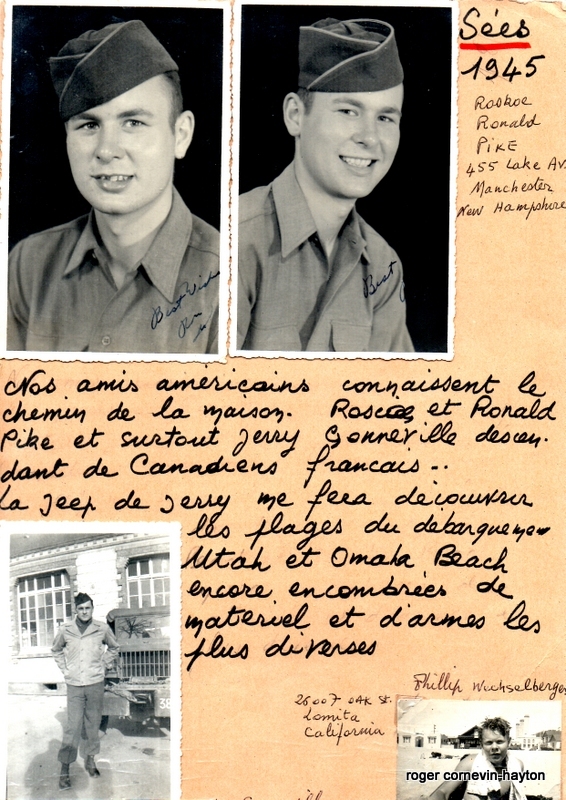 Sées
1945
Roskoe
Ronald
PIKE
455 Lake Av.
Manchester
New Hampshire
Best Wishes
Best
Nos amis américains connaissent le
chemin de la maison. Roscoe et Ronald
Pike et surtout Jerry Gonneville descen-
dant de Canadiens francais..
La Jeep de Jerry me fera découvrir
les plages du débarquement
Utah et Omaha Beach
encore encombrées de
matériel et d'armes les
plus diverses
Phillip Wechselberger
26007 OAK St.
Lomita
California
38
roger cornevin-hayton